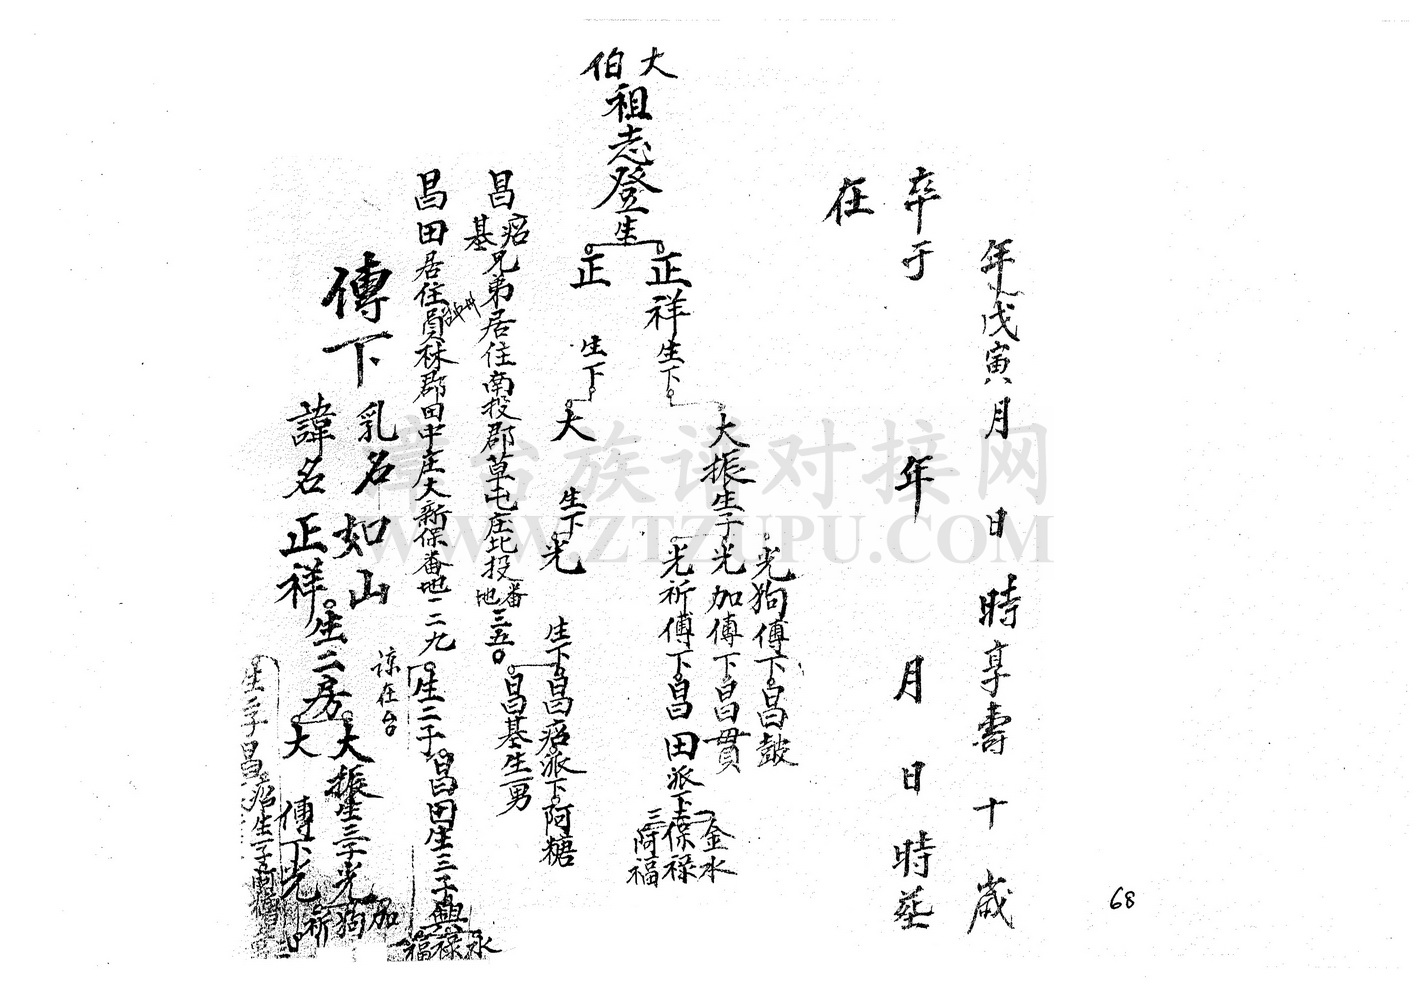 年戊寅月日時享壽十歲
卒于年月日時葬
在
大伯祖志登生
正祥生下
正生下
大振生子
光狗傳下昌鼓
光加傳下昌貫
光祈傳下昌田派下
金水
保祿
三阿福
大生下光生下昌痞派下阿糖
昌基生一男
昌痞基兄弟居住南投郡草屯庄北投番地三五〇
昌田居住員林郡田中庄大新保番地二二九生二子
台中州
昌田生三子興
水
祿
福
諒在台
傳下
乳名如山
諱名正祥生二房
大振生三子光
加
狗
祈
大傳下光
生二子昌痞生一子阿糖
68
章台族谱对接网
WWW.ZTZUPU.COM